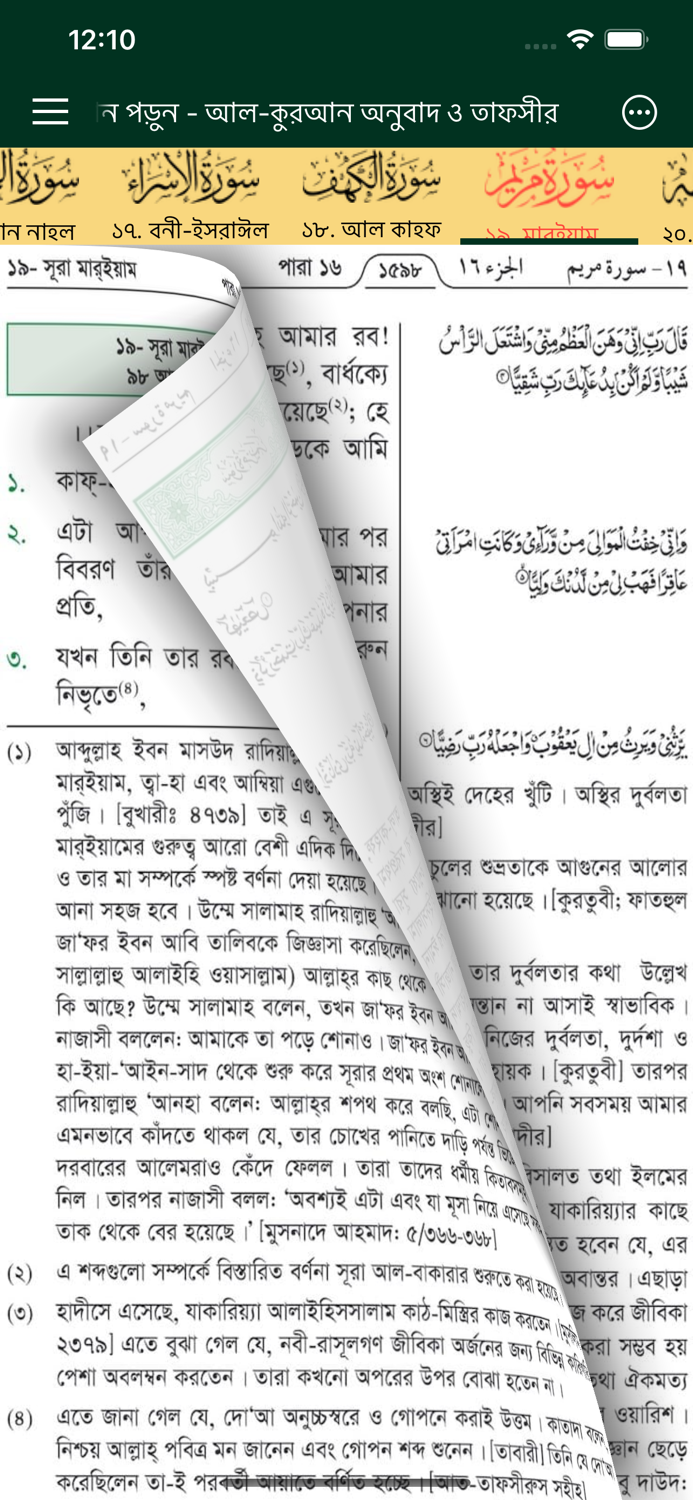 12:10
ন পড়ুন - আল-কুরআন অনুবাদ ও তাফসীর
سُورَةُ الإِسْرَاء
سُورَةُ الكَهْف
سُورَةُ مَرْيَم
ান নাহল
১৭. বনী-ইসরাঈল
১৮. আল কাহফ
১৯. মারইয়াম
২০.
১৯- সূরা মার্‌ইয়াম
পারা ১৬
১৫৯৮
الجزء ١٦
١٩ - سورة مريم
১৯- সূরা মার
৯৮
১. কাফ্-
২. এটা
বিবরণ তাঁর
প্রতি,
৩. যখন তিনি তার রব
নিভৃতে(৪),
আমার রব!
ছে(১), বার্ধক্যে
য়েছে(২); হে
ডকে আমি
মার পর
আমার
পনার
রুন
قَالَ رَبِّ اِنِّىْ وَهَنَ الْعَظْمُ مِنِّىْ وَاشْتَعَلَ الرَّاْسُ
شَيْبًا وَّلَمْ اَكُنْۢ بِدُعَآىِٕكَ رَبِّ شَقِيًّا
وَاِنِّىْ خِفْتُ الْمَوَالِىَ مِنْ وَّرَآءِىْ وَكَانَتِ امْرَاَتِىْ
عَاقِرًا فَهَبْ لِىْ مِنْ لَّدُنْكَ وَلِيًّا
يَّرِثُنِىْ وَيَرِثُ مِنْ اٰلِ يَعْقُوْبَ وَاجْعَلْهُ رَبِّ رَضِيًّا
(১) আব্দুল্লাহ ইবন মাসউদ রাদিয়াল্
মার্‌ইয়াম, ত্বা-হা এবং আম্বিয়া এগু
পুঁজি। [বুখারীঃ ৪৭৩৯] তাই এ সূ
মার্‌ইয়ামের গুরুত্ব আরো বেশী এদিক দি
ও তার মা সম্পর্কে স্পষ্ট বর্ণনা দেয়া হয়েছে।
আনা সহজ হবে। উম্মে সালামাহ রাদিয়াল্লাহু ‘আ
জা‘ফর ইবন আবি তালিবকে জিজ্ঞাসা করেছিলেন,
সাল্লাল্লাহু আলাইহি ওয়াসাল্লাম) আল্লাহ্‌র কাছ থেকে
কি আছে? উম্মে সালামাহ বলেন, তখন জা‘ফর ইবন আ
নাজাসী বললেন: আমাকে তা পড়ে শোনাও। জা‘ফর ইবন আ
হা-ইয়া-‘আইন-সাদ থেকে শুরু করে সূরার প্রথম অংশ শোনালে
রাদিয়াল্লাহু ‘আনহা বলেন: আল্লাহ্‌র শপথ করে বলছি, এটা শো
এমনভাবে কাঁদতে থাকল যে, তার চোখের পানিতে দাড়ি পর্যন্ত ভিজে
দরবারের আলেমরাও কেঁদে ফেলল। তারা তাদের ধর্মীয় কিতাবসমূ
নিল। তারপর নাজাসী বলল: ‘অবশ্যই এটা এবং যা মূসা নিয়ে এসেছে
তাক থেকে বের হয়েছে।’ [মুসনাদে আহমাদ: ৫/৩৬৬-৩৬৮]
(২) এ শব্দগুলো সম্পর্কে বিস্তারিত বর্ণনা সূরা আল-বাকারার শুরুতে করা হয়েছে
(৩) হাদীসে এসেছে, যাকারিয়্যা আলাইহিসসালাম কাঠ-মিস্ত্রির কাজ করতেন।
২৩৭৯] এতে বুঝা গেল যে, নবী-রাসূলগণ জীবিকা অর্জনের জন্য বিভিন্ন
পেশা অবলম্বন করতেন। তারা কখনো অপরের উপর বোঝা হতেন না।
(৪) এতে জানা গেল যে, দো‘আ অনুচ্চস্বরে ও গোপনে করাই উত্তম। কাতাদা বলেন
নিশ্চয় আল্লাহ্‌ পবিত্র মন জানেন এবং গোপন শব্দ শুনেন। [তাবারী] তিনি যে দো‘আ
করেছিলেন তা-ই পরবর্তী আয়াতে বর্ণিত হচ্ছে। [আত-তাফসীরুস সহীহ]
অস্থিই দেহের খুঁটি। অস্থির দুর্বলতা
দীর]
চুলের শুভ্রতাকে আগুনের আলোর
ঝানো হয়েছে। [কুরতুবী; ফাতহুল
তার দুর্বলতার কথা উল্লেখ
ন্তান না আসাই স্বাভাবিক।
নিজের দুর্বলতা, দুর্দশা ও
হায়ক। [কুরতুবী] তারপর
আপনি সবসময় আমার
দীর]
রিসালত তথা ইলমের
যাকারিয়্যার কাছে
ত হবেন যে, এর
অবান্তর। এছাড়া
জ করে জীবিকা
করা সম্ভব হয়
কথা ঐকমত্য
ওয়ারিশ।
জ্ঞান ছেড়ে
বু দাউদ: